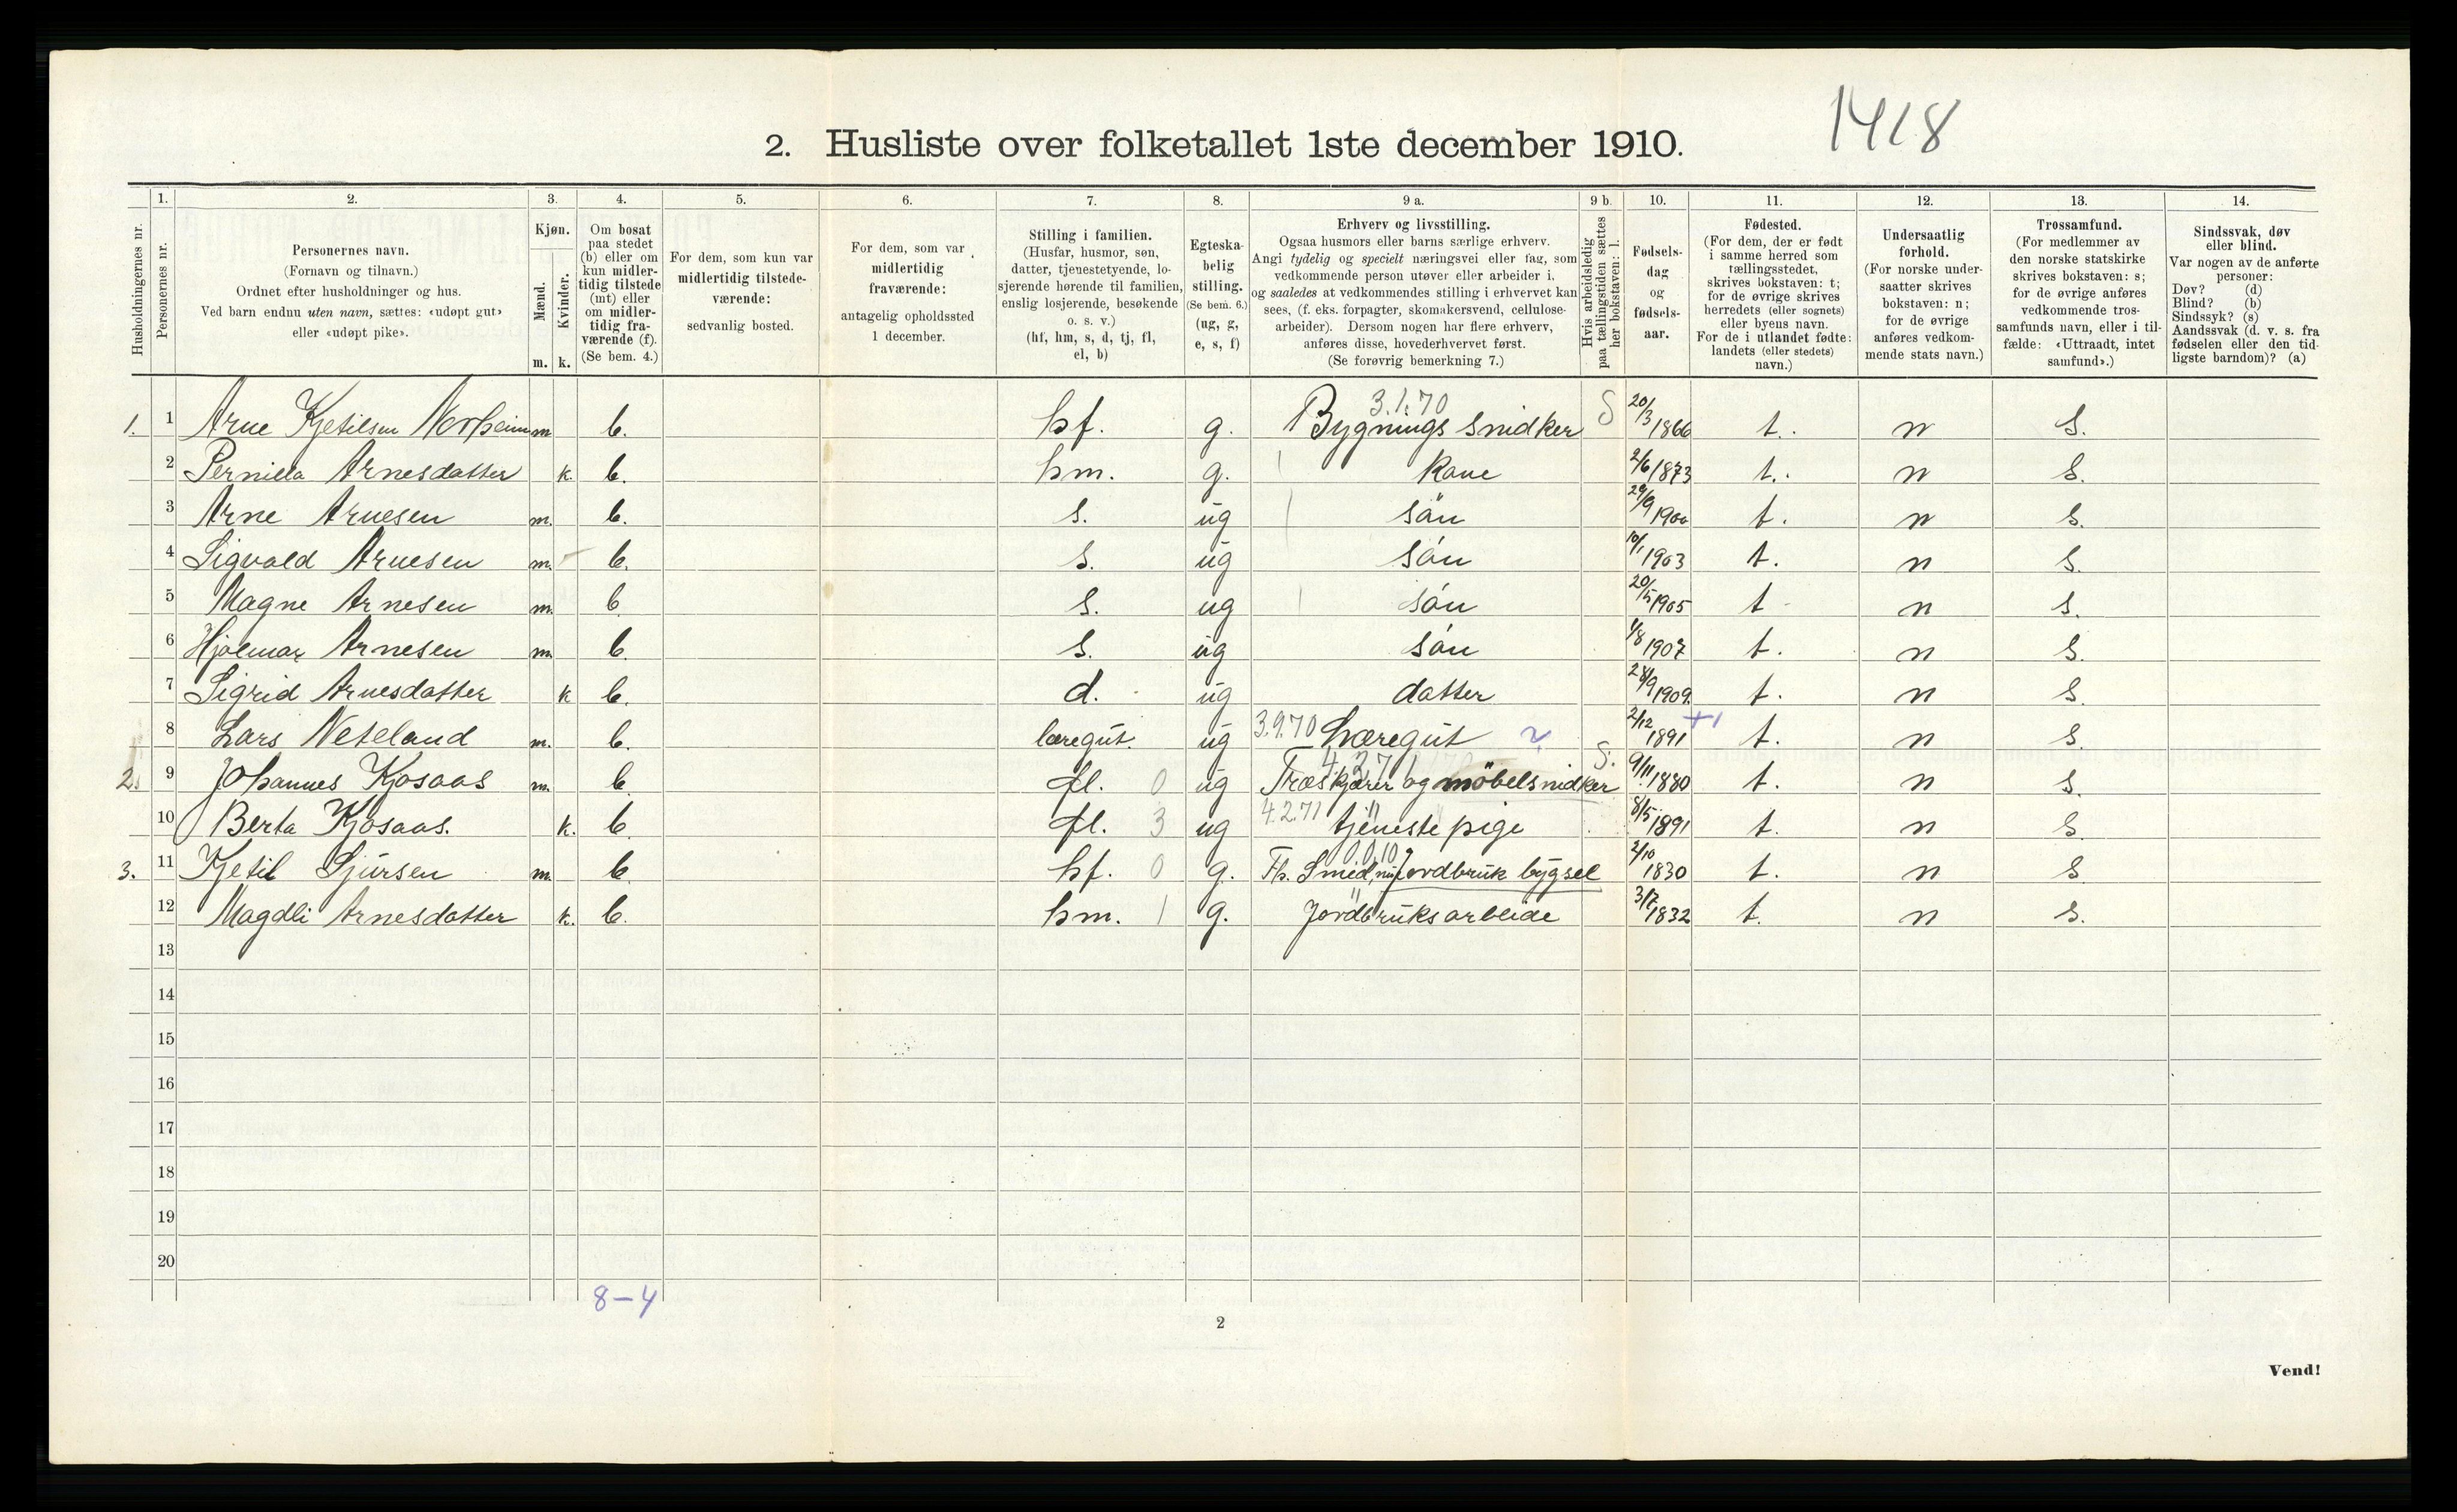 1418
2. Husliste over folketallet 1ste december 1910.
Husholdningernes nr.
1.
Personernes nr.
2.
Personernes navn.
(Fornavn og tilnavn.)
Ordnet efter husholdninger og hus.
Ved barn endnu uten navn, sættes: «udøpt gut»
eller «udøpt pike».
3.
Kjøn.
Mænd.
Kvinder.
m. k.
4.
Om bosat
paa stedet
(b) eller om
kun midler-
tidig tilstede
(mt) eller
om midler-
tidig fra-
værende (f).
(Se bem. 4.)
5.
For dem, som kun var
midlertidig tilstede-
værende:
sedvanlig bosted.
6.
For dem, som var
midlertidig
fraværende:
antagelig opholdssted
1 december.
7.
Stilling i familien.
(Husfar, husmor, søn,
datter, tjenestetyende, lo-
sjerende hørende til familien,
enslig losjerende, besøkende
o. s. v.)
(hf, hm, s, d, tj, fl,
el, b)
8.
Egteska-
belig
stilling.
(Se bem. 6.)
(ug, g,
e, s, f)
9 a.
Erhverv og livsstilling.
Ogsaa husmors eller barns særlige erhverv.
Angi tydelig og specielt næringsvei eller fag, som
vedkommende person utøver eller arbeider i,
og saaledes at vedkommendes stilling i erhvervet kan
sees, (f. eks. forpagter, skomakersvend, cellulose-
arbeider). Dersom nogen har flere erhverv,
anføres disse, hovederhvervet først.
(Se forøvrig bemerkning 7.)
9 b.
Hvis arbeidsledig
paa tællingstiden sættes
her bokstaven: l.
10.
Fødsels-
dag
og
fødsels-
aar.
11.
Fødested.
(For dem, der er født
i samme herred som
tællingsstedet,
skrives bokstaven: t;
for de øvrige skrives
herredets (eller sognets)
eller byens navn.
For de i utlandet fødte:
landets (eller stedets)
navn.)
12.
Undersaatlig
forhold.
(For norske under-
saatter skrives
bokstaven: n;
for de øvrige
anføres vedkom-
mende stats navn.)
13.
Trossamfund.
(For medlemmer av
den norske statskirke
skrives bokstaven: s;
for de øvrige anføres
vedkommende tros-
samfunds navn, eller i til-
fælde: «Uttraadt, intet
samfund».)
14.
Sindssvak, døv
eller blind.
Var nogen av de anførte
personer:
Døv? (d)
Blind? (b)
Sindssyk? (s)
Aandssvak (d. v. s. fra
fødselen eller den tid-
ligste barndom)? (a)
3.1.70
1. 1 Arne Kjetilsen Norheim m b. hf. g. Bygnings snidker S 20/3 1866 t. n S.
2 Pernilla Arnesdatter k. b. hm. g. Kone 2/6 1873 t. n S.
3 Arne Arnesen m. b. s. ug sön 29/9 1900 t. n S.
4 Sigvald Arnesen m. b. s. ug sön 10/1 1903 t. n S.
5 Magne Arnesen m. b s. ug sön 20/5 1905 t n S.
6 Hjalmar Arnesen m. b. s. ug sön 1/8 1907 t. n S.
7 Sigrid Arnesdatter k b. d. ug datter 28/9 1909. t. n S.
8 Lars Neteland m. b. læregut. ug 3.9.70 Læregut 2/12 1891 +1 t. n S.
2. 9 Johannes Kjosaas m. b. fl. 0 ug Træskjærer og möbelsnidker S. 9/11 1880 t. n S.
10 Berta Kjosaas. k. b. fl. 3 ug 4.2.71 tjeneste pige 8/5 1891 t. n S.
3. 11 Kjetil Sjursen m. b. hf. 0 g. Fh. Smed, nu Jordbruk bygsel 2/10 1830 t. n S
12 Magdli Arnesdatter k. b. hm. 1 g. Jordbruksarbeide 3/7 1832 t. n S.
13
14
15
16
17
18
19
20
8–4
2
Vend!